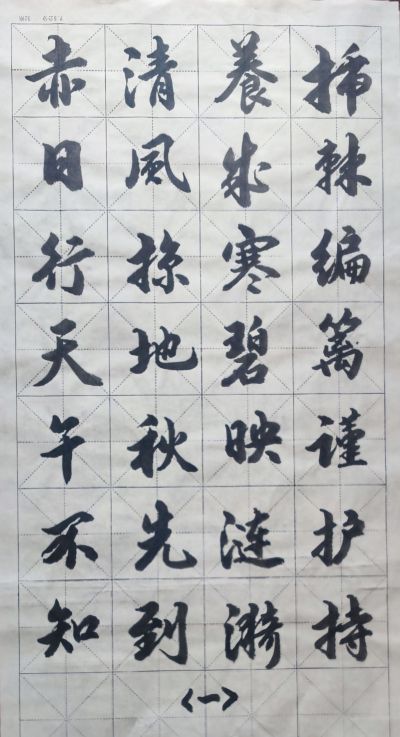 插棘编篱谨护持
養成寒碧映涟漪
清風掠地秋先到
赤日行天午不知
<一>